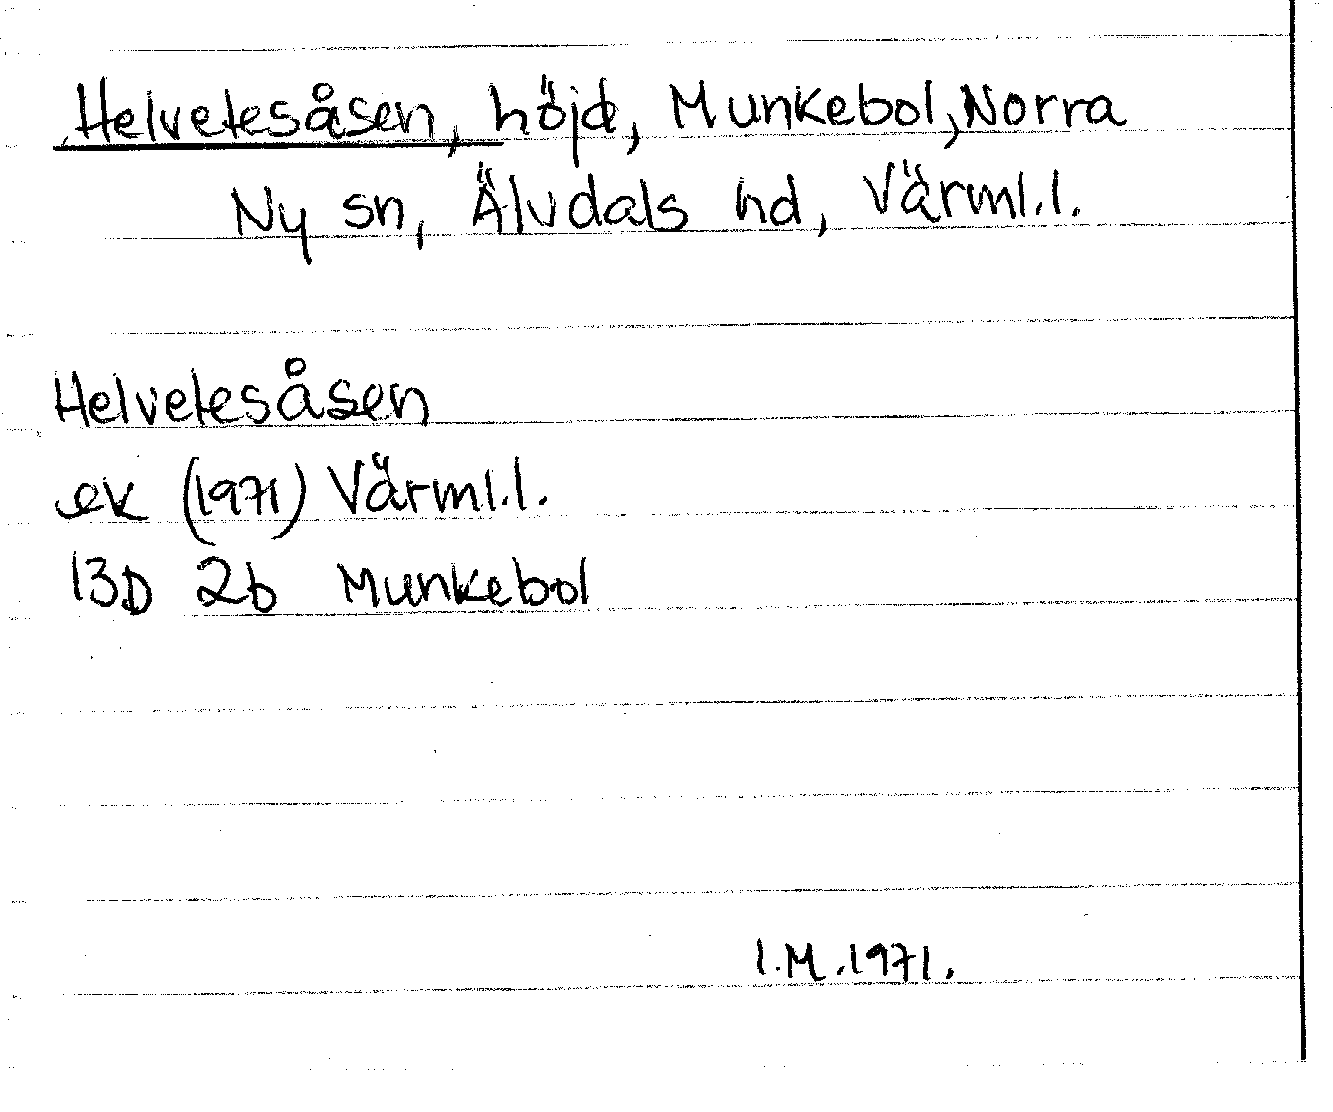 Helvetesåsen, höjd, Munkebol, Norra
Ny sn, Älvdals hd, Värml.l.
Helvetesåsen
ek (1971) Värml.l.
13D 2b Munkebol
I.M.1971.